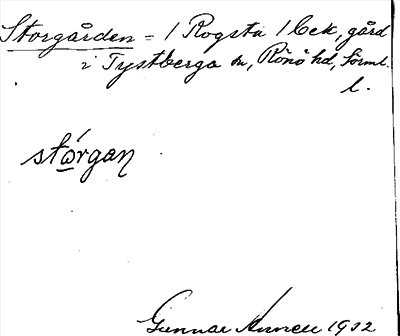 Storgården = 1 Rogsta 1 bek, gård
i Tystberga sn, Rönö hd, Sörml.
l.
stórgan
Gunnar 1932